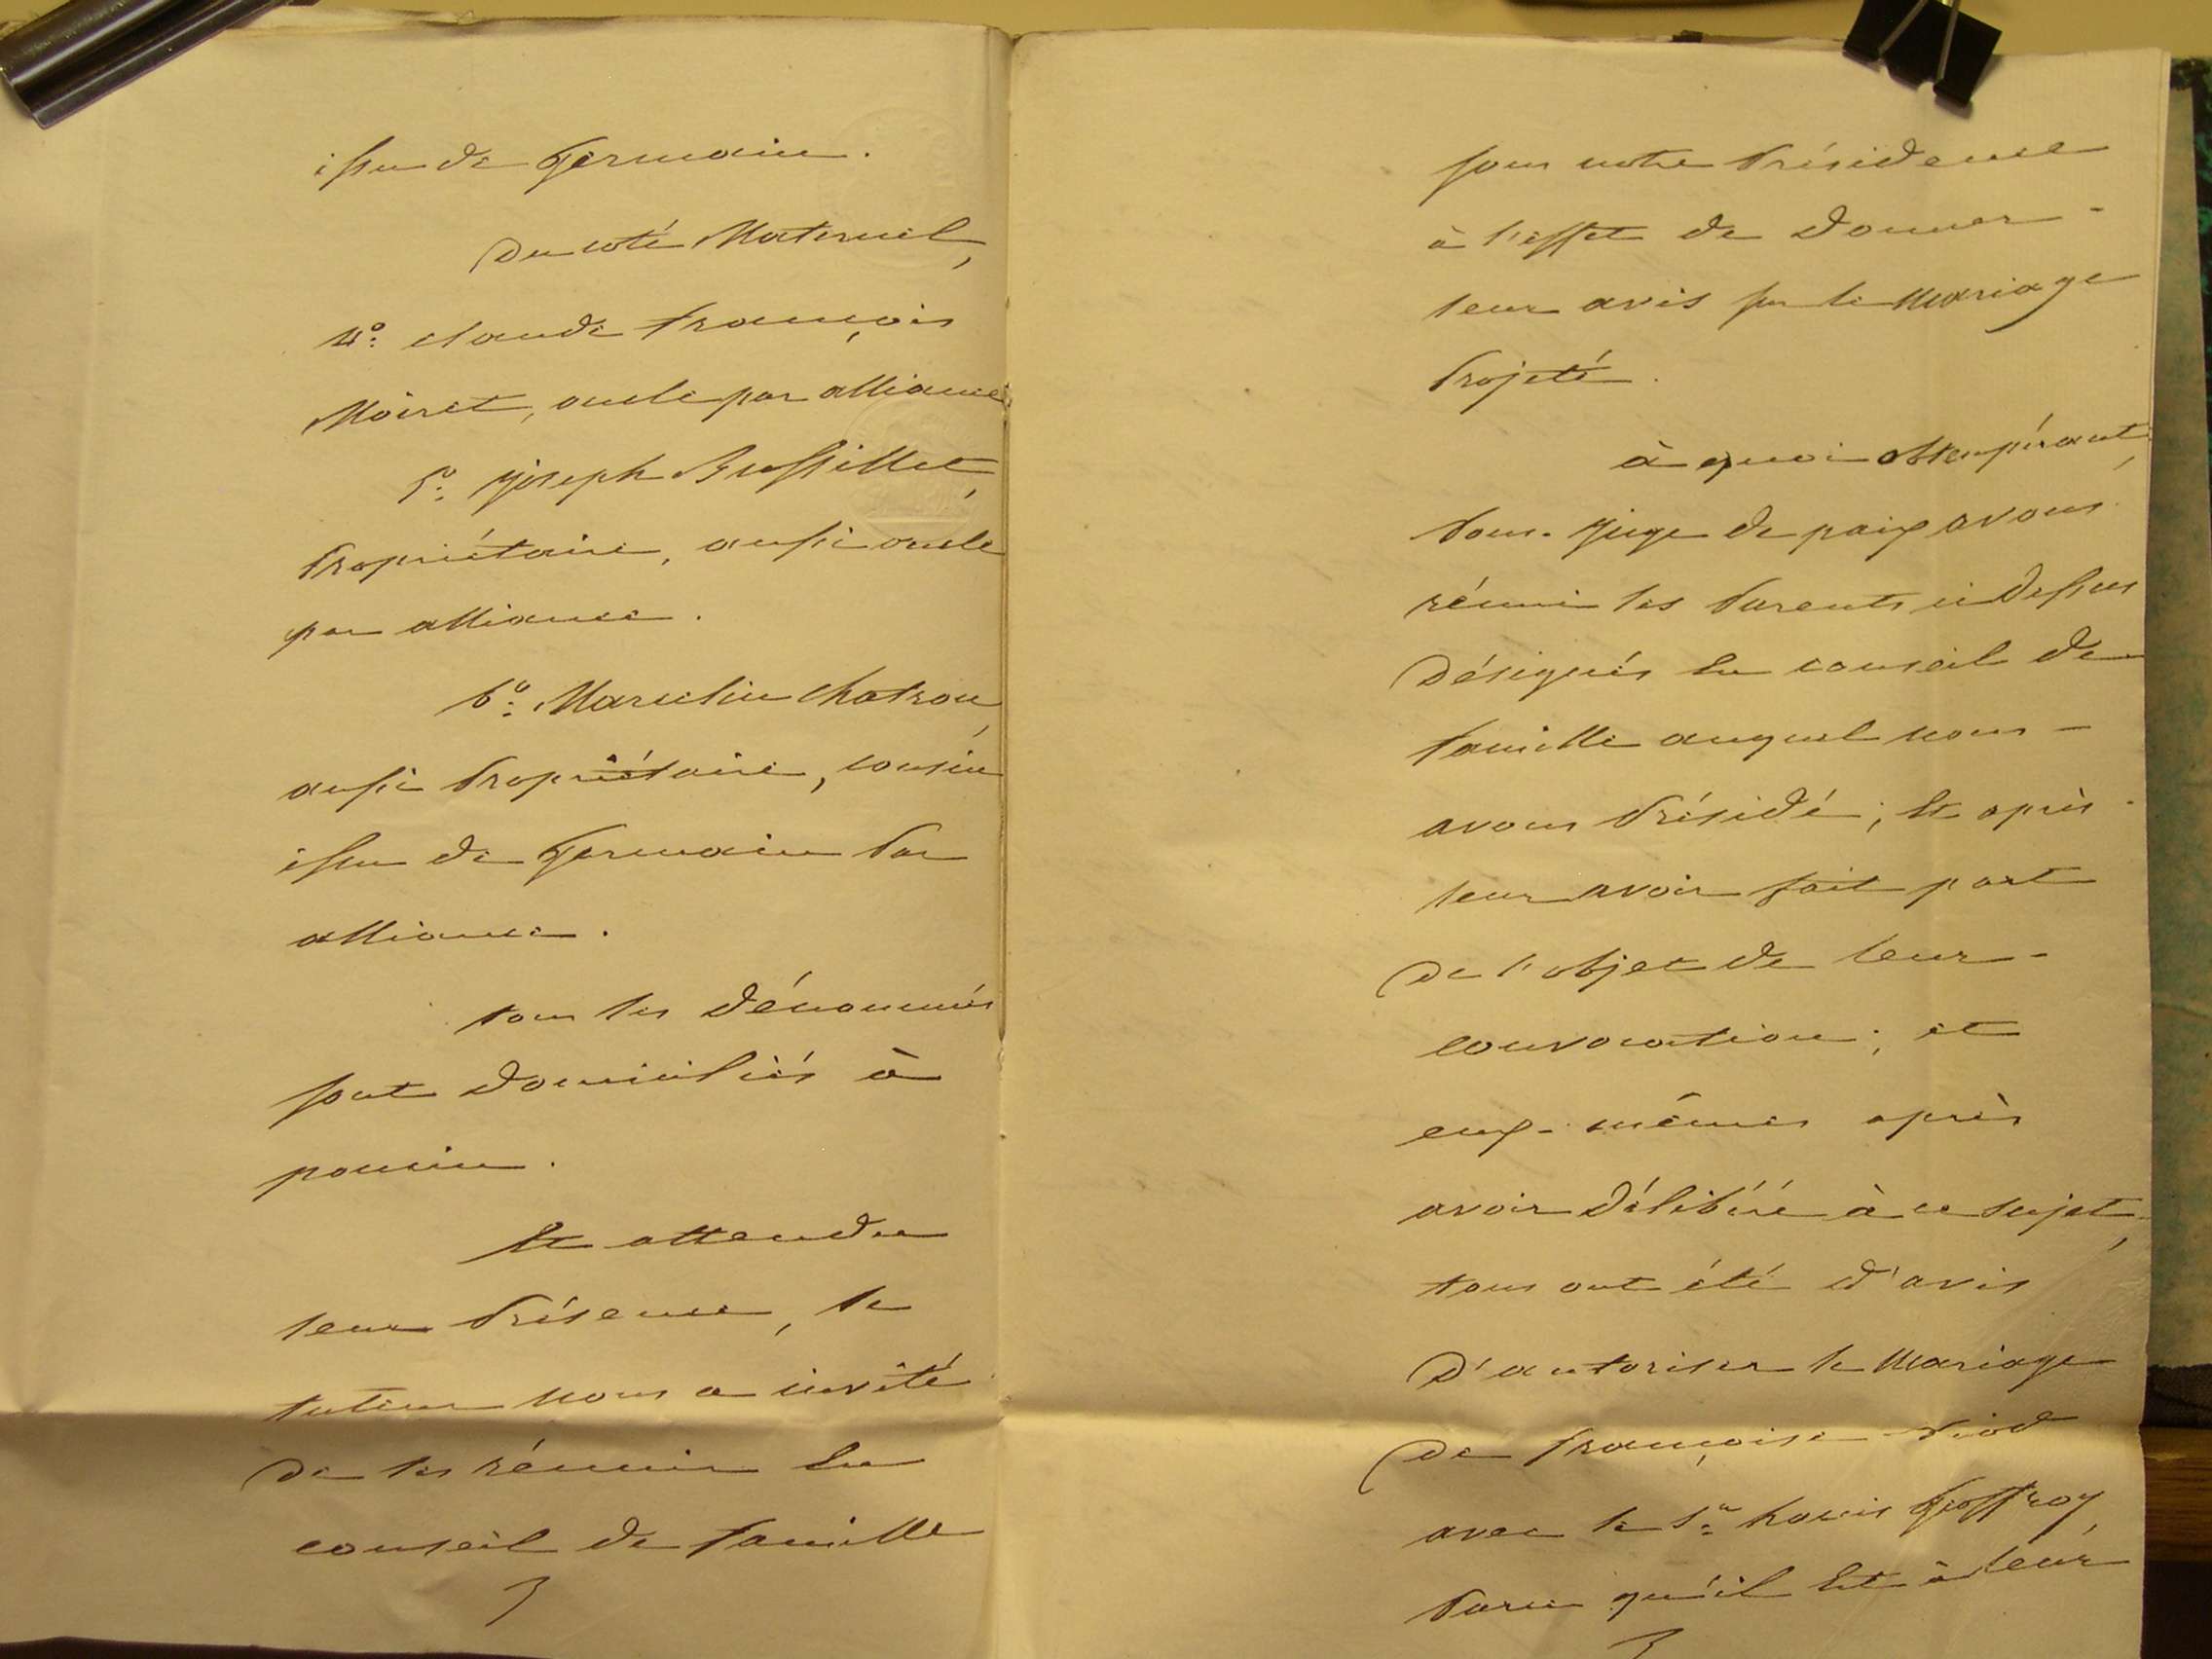 issu de Germain.
Du coté Maternel,
4° Claude François
Moiret, oncle par alliance
5° Joseph Bussillet,
Propriétaire, aussi oncle
par alliance.
6° Marcelin Chatron,
aussi Propriétaire, cousin
issu de Germain Par
alliance.
tous les dénommés
sont domiciliés à
poncin.
Et attendu
leur Présence, le
tuteur nous a invité
de les réunir En
conseil de famille
sous notre Présidence
à l'effet de donner -
leur avis sur le Mariage
Projeté.
à quoi obtempérant,
Nous. Juge de paix avons
réuni les Parents ci dessus
Désignés En conseil de
famille auquel nous -
avons Présidé; Et après -
leur avoir fait part
de l'objet de leur -
convocation; et
eux-mêmes après
avoir Délibéré à ce sujet,
tous ont été d'avis
D'autoriser le Mariage
de françoise
avec le Sr. Louis Geoffroy,
Parce qu'il Est à leur